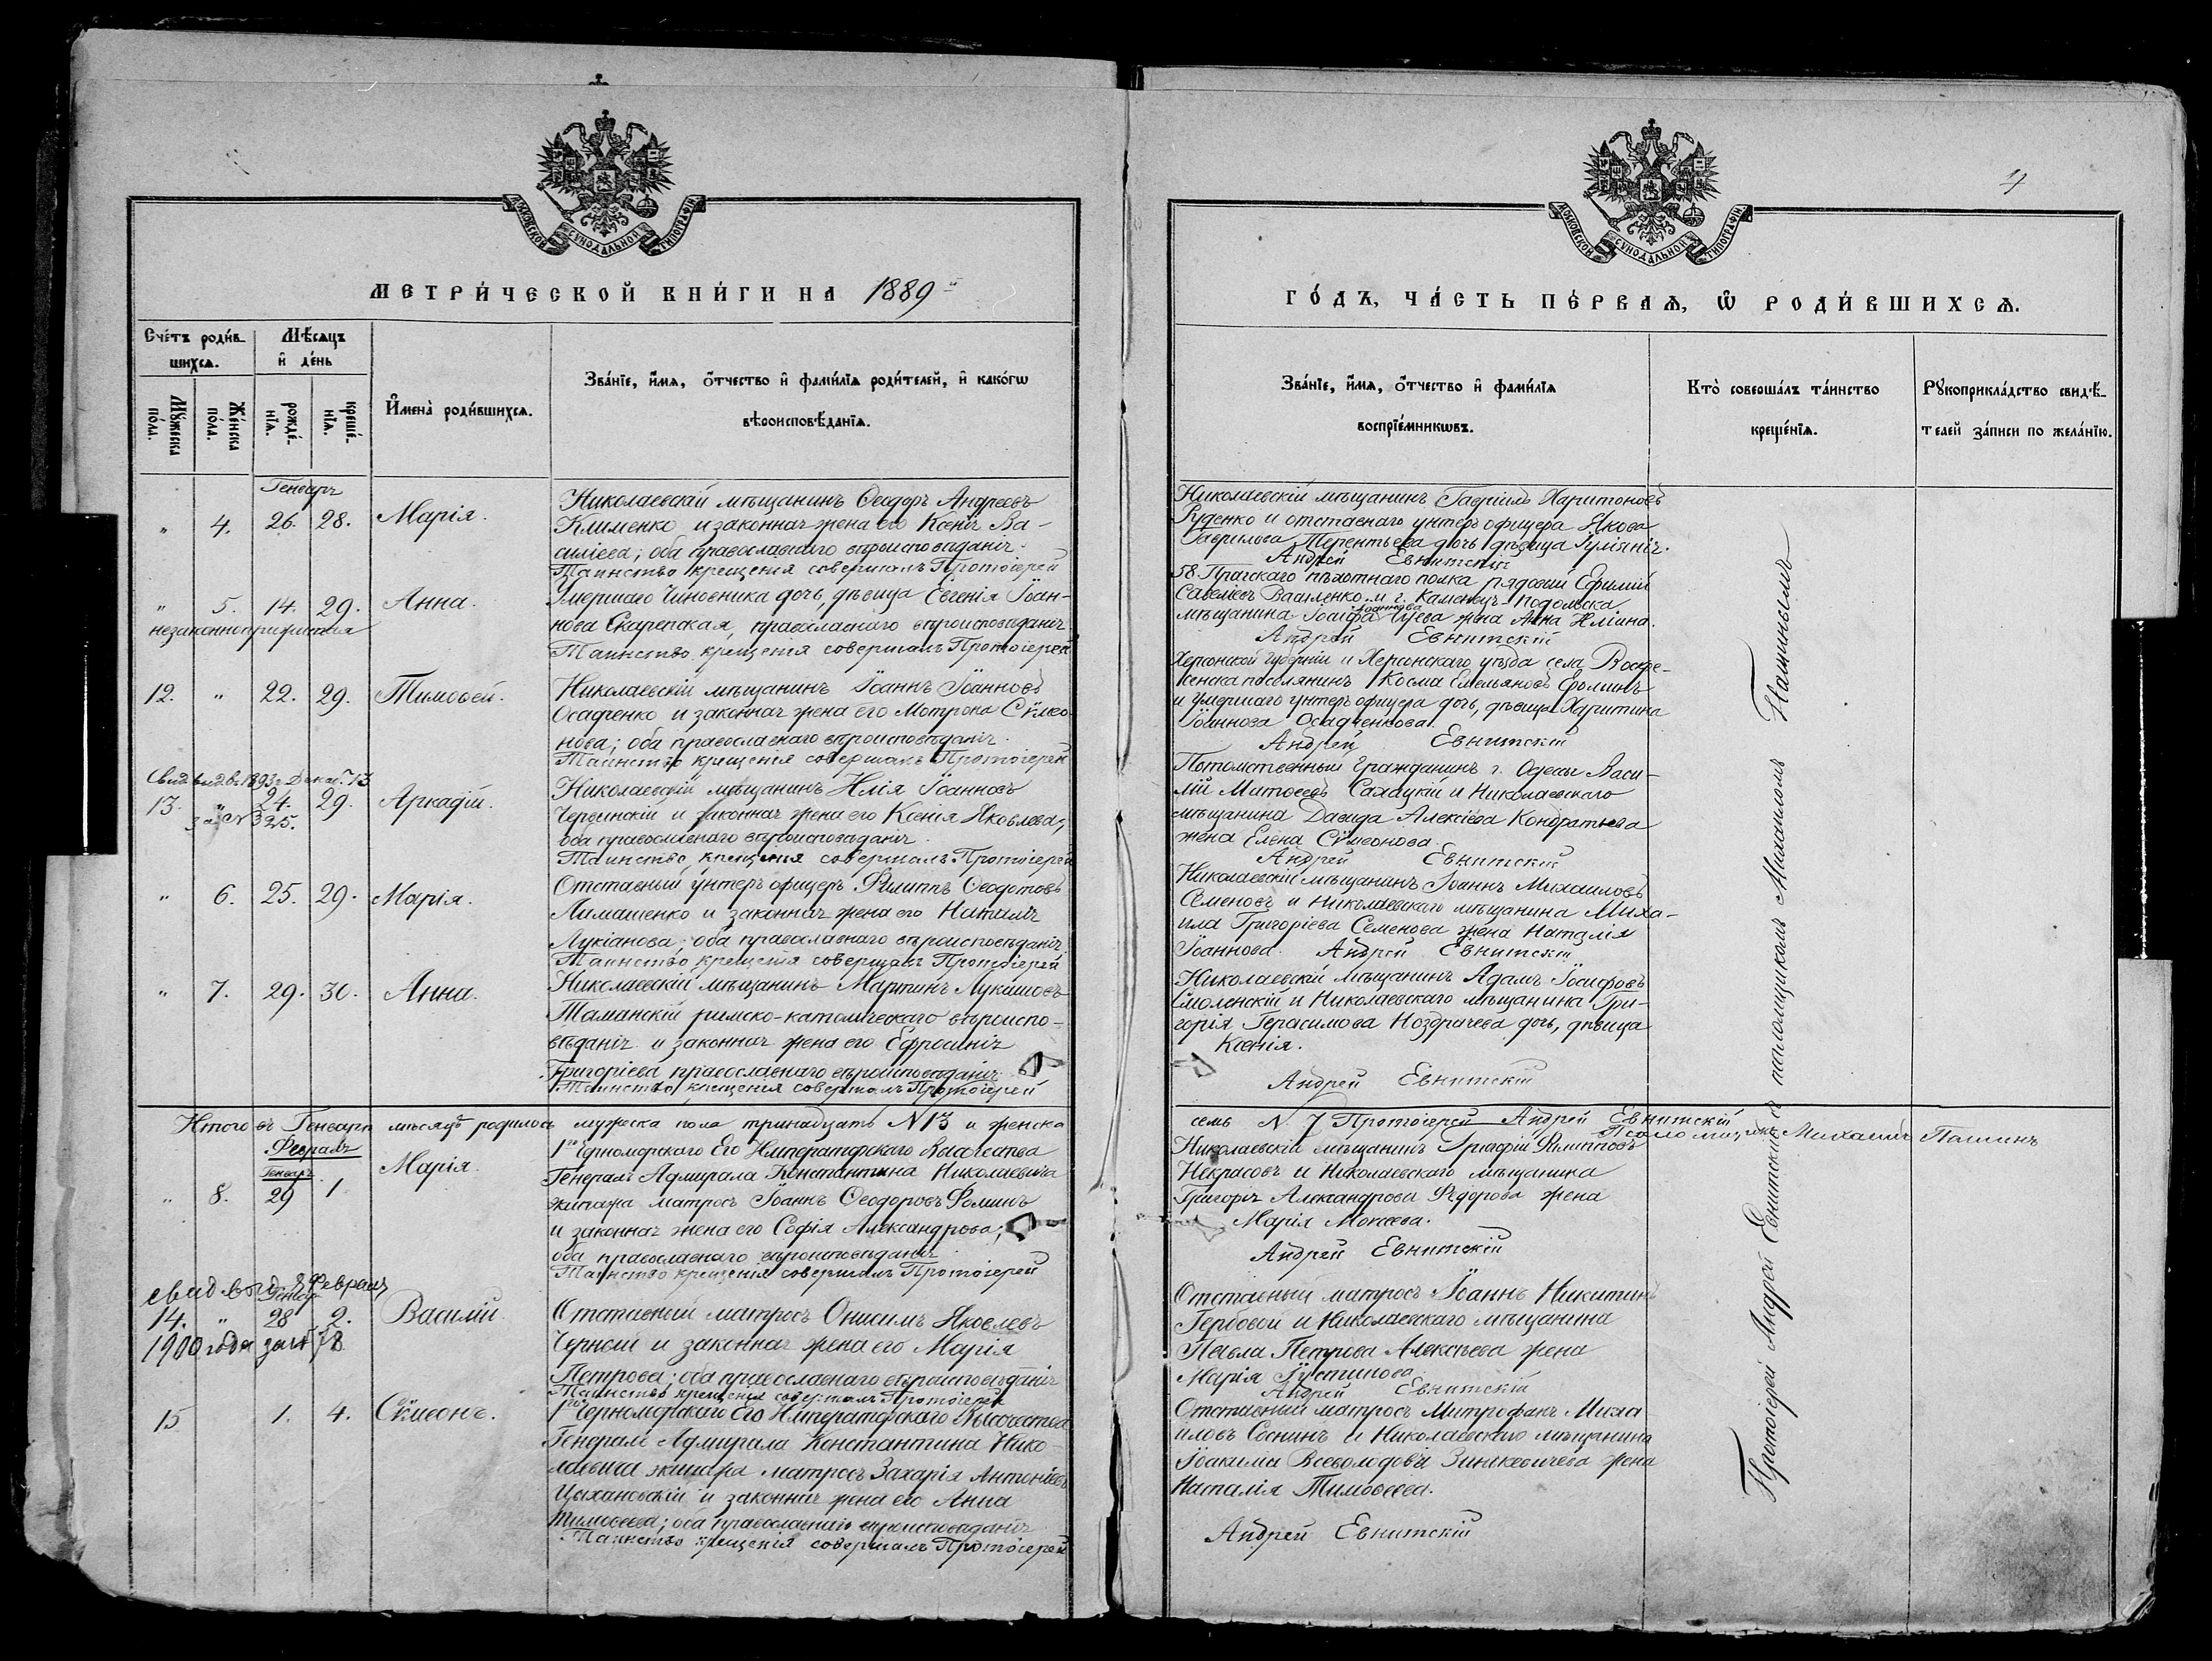 МОСКОВСКОЙ СѴНОДАЛЬНОЙ ТИПОГРАФІИ
МЕТРИ́ЧЕСКОЙ КНИ́ГИ НА 1889й
Сче́тъ роди́в-
шихсѧ.
Мѣ́сѧцъ
и҆ де́нь
Мꙋ́жеска
по́ла.
Же́нска
по́ла.
рожде́-
нїѧ.
креще́-
нїѧ.
И҆мена̀ роди́вшихсѧ.
Зва́нїе, и҆́мѧ, ѻ҆́тчество и҆ фами́лїѧ роди́телей, и҆ како́гѡ
вѣроисповѣ́данїѧ.
Генварь
" 4. 26. 28. Марія.
Николаевскій мѣщанинъ Ѳеодоръ Андреевъ
Клименко и законная жена его Ксенія Ва-
силіева; оба православнаго вѣроисповѣданія.
Таинство крещенія совершалъ Протоіерей
" 5. 14. 29. Анна.
незаконноприжитая
Умершаго Чиновника дочь, дѣвица Евгенія Іоан-
нова Скарепская, православнаго вѣроисповѣданія
Таинство крещенія совершалъ Протоіерей
12. " 22. 29. Тимоѳей.
Николаевскій мѣщанинъ Іоаннъ Іоанновъ
Осадченко и законная жена его Мотрона Сѵмео-
нова; оба православнаго вѣроисповѣданія.
Таинство крещенія совершалъ Протоіерей
Свид. выд. въ 1893 г. Декаб. 13
13. " 24. 29. Аркадій.
за № 325.
Николаевскій мѣщанинъ Илія Іоанновъ
и законная жена его Ксенія Яковлева;
оба православнаго вѣроисповѣданія.
Таинство крещенія совершалъ Протоіерей
" 6. 25. 29. Марія.
Отставный унтеръ офицеръ Филиппъ Ѳеодотовъ
Лимашенко и законная жена его Наталія
Лукіанова; оба православнаго вѣроисповѣданія
Таинство крещенія совершалъ Протоіерей
" 7. 29. 30. Анна.
Николаевскій мѣщанинъ Мартинъ
Таманскій римско-католическаго вѣроиспо-
вѣданія и законная жена его Ефросинія
Григоріева православнаго вѣроисповѣданія.
Таинство крещенія совершалъ Протоіерей
Итого въ Генварѣ мѣсяцѣ родилось мужеска пола тринадцать N 13 и женска
Февраль
Генварь
" 8. 29 1 Марія.
1го Черноморскаго Его Императорскаго Высочества
Генералъ Адмирала Константина Николаевича
экипажа матросъ Іоаннъ Ѳеодоровъ Фоминъ
и законная жена его Софія Александрова;
оба православнаго вѣроисповѣданія.
Таинство крещенія совершалъ Протоіерей
свид. выд. 8 Февраля
Генвар
14. " 28 2. Василій.
1900 года за № 78
Отставный матросъ Онисимъ Яковлевъ
Черный и законная жена его Марія
Петрова; оба православнаго вѣроисповѣданія
Таинство крещенія совершалъ Протоіерей
15 1. 4. Сѵмеонъ.
1го Черноморскаго Его Императорскаго Высочества
Генералъ Адмирала Константина Нико-
лаевича экипажа матросъ Захарія Антоніевъ
Цыхановскій и законная жена его Анна
Тимоѳеева; оба православнаго вѣроисповѣданія
Таинство крещенія совершалъ Протоіерей
МОСКОВСКОЙ СѴНОДАЛЬНОЙ ТИПОГРАФІИ
ГО́ДЪ, ЧА́СТЬ ПЕ́РВАѦ, Ѽ РОДИ́ВШИХСѦ.
Зва́нїе, и҆́мѧ, ѻ҆́тчество и҆ фами́лїѧ
воспрїе́мникѡвъ.
Кто̀ соверша́лъ та́инство
креще́нїѧ.
Рꙋкоприкла́дство свидѣ́-
телей за́писи по жела́нїю.
Николаевскій мѣщанинъ Гавріилъ Харитоновъ
Руденко и отставнаго унтеръ офицера Якова
Гаврилова Терентьева дочь дѣвица Іуліанія.
Андрей Евнитскій
58. Прагскаго пѣхотнаго полка рядовый Ефимій
Савелевъ Василенко и г. Каменецъ-Подольска
мѣщанина Іосифа Іоаннова жена Анна Иліина.
Андрей Евнитскій
Херсонской губерніи и Херсонскаго уѣзда села Воскре-
сенска поселянинъ Косма Емельяновъ
и умершаго унтеръ офицера дочь, дѣвица Харитина
Іоаннова Осадченкова.
Андрей Евнитскій
Потомственный гражданинъ г. Одессы Васи-
лій Матѳеевъ и Николаевскаго
мѣщанина Давида Алексіева Кондратьева
жена Елена Сѵмеонова.
Андрей Евнитскій
Николаевскій мѣщанинъ Іоаннъ Михаиловъ
Семеновъ и Николаевскаго мѣщанина Миха-
ила Григоріева Семенова жена Наталія
Іоаннова. Андрей Евнитскій
Николаевскій мѣщанинъ Адамъ Іосифовъ
Смоленскій и Николаевскаго мѣщанина Гри-
горія Герасимова Ноздрачева дочь, дѣвица
Ксенія.
Андрей Евнитскій
семь N 7 Протоіерей Андрей Евнитскій
Псаломщикъ Михаилъ Пашинъ
Николаевскій мѣщанинъ Григорій Филипповъ
Некрасовъ и Николаевскаго мѣщанина
Григорія Александрова Федорова жена
Марія Мокіева.
Андрей Евнитскій
Отставный матросъ Іоаннъ Никитинъ
Гербовой и Николаевскаго мѣщанина
Павла Петрова Алексѣева жена
Марія Іустинова
Андрей Евнитскій
Отставный матросъ Митрофанъ Миха
иловъ Соснинъ и Николаевскаго мѣщанина
Іоакима Всеволодова Зинкевичева жена
Наталія Тимоѳеева.
Андрей Евнитскій
Протоіерей Андрей Евнитскій съ псаломщикомъ Михаиломъ Пашинымъ